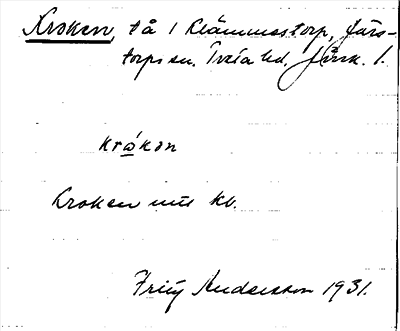 Kroken, tå i Klämmestorp, Järs-
torps sn. Tveta hd. Jönk. l.
krókən
Kroken uttc kb.
Fritz Andersson 1931.